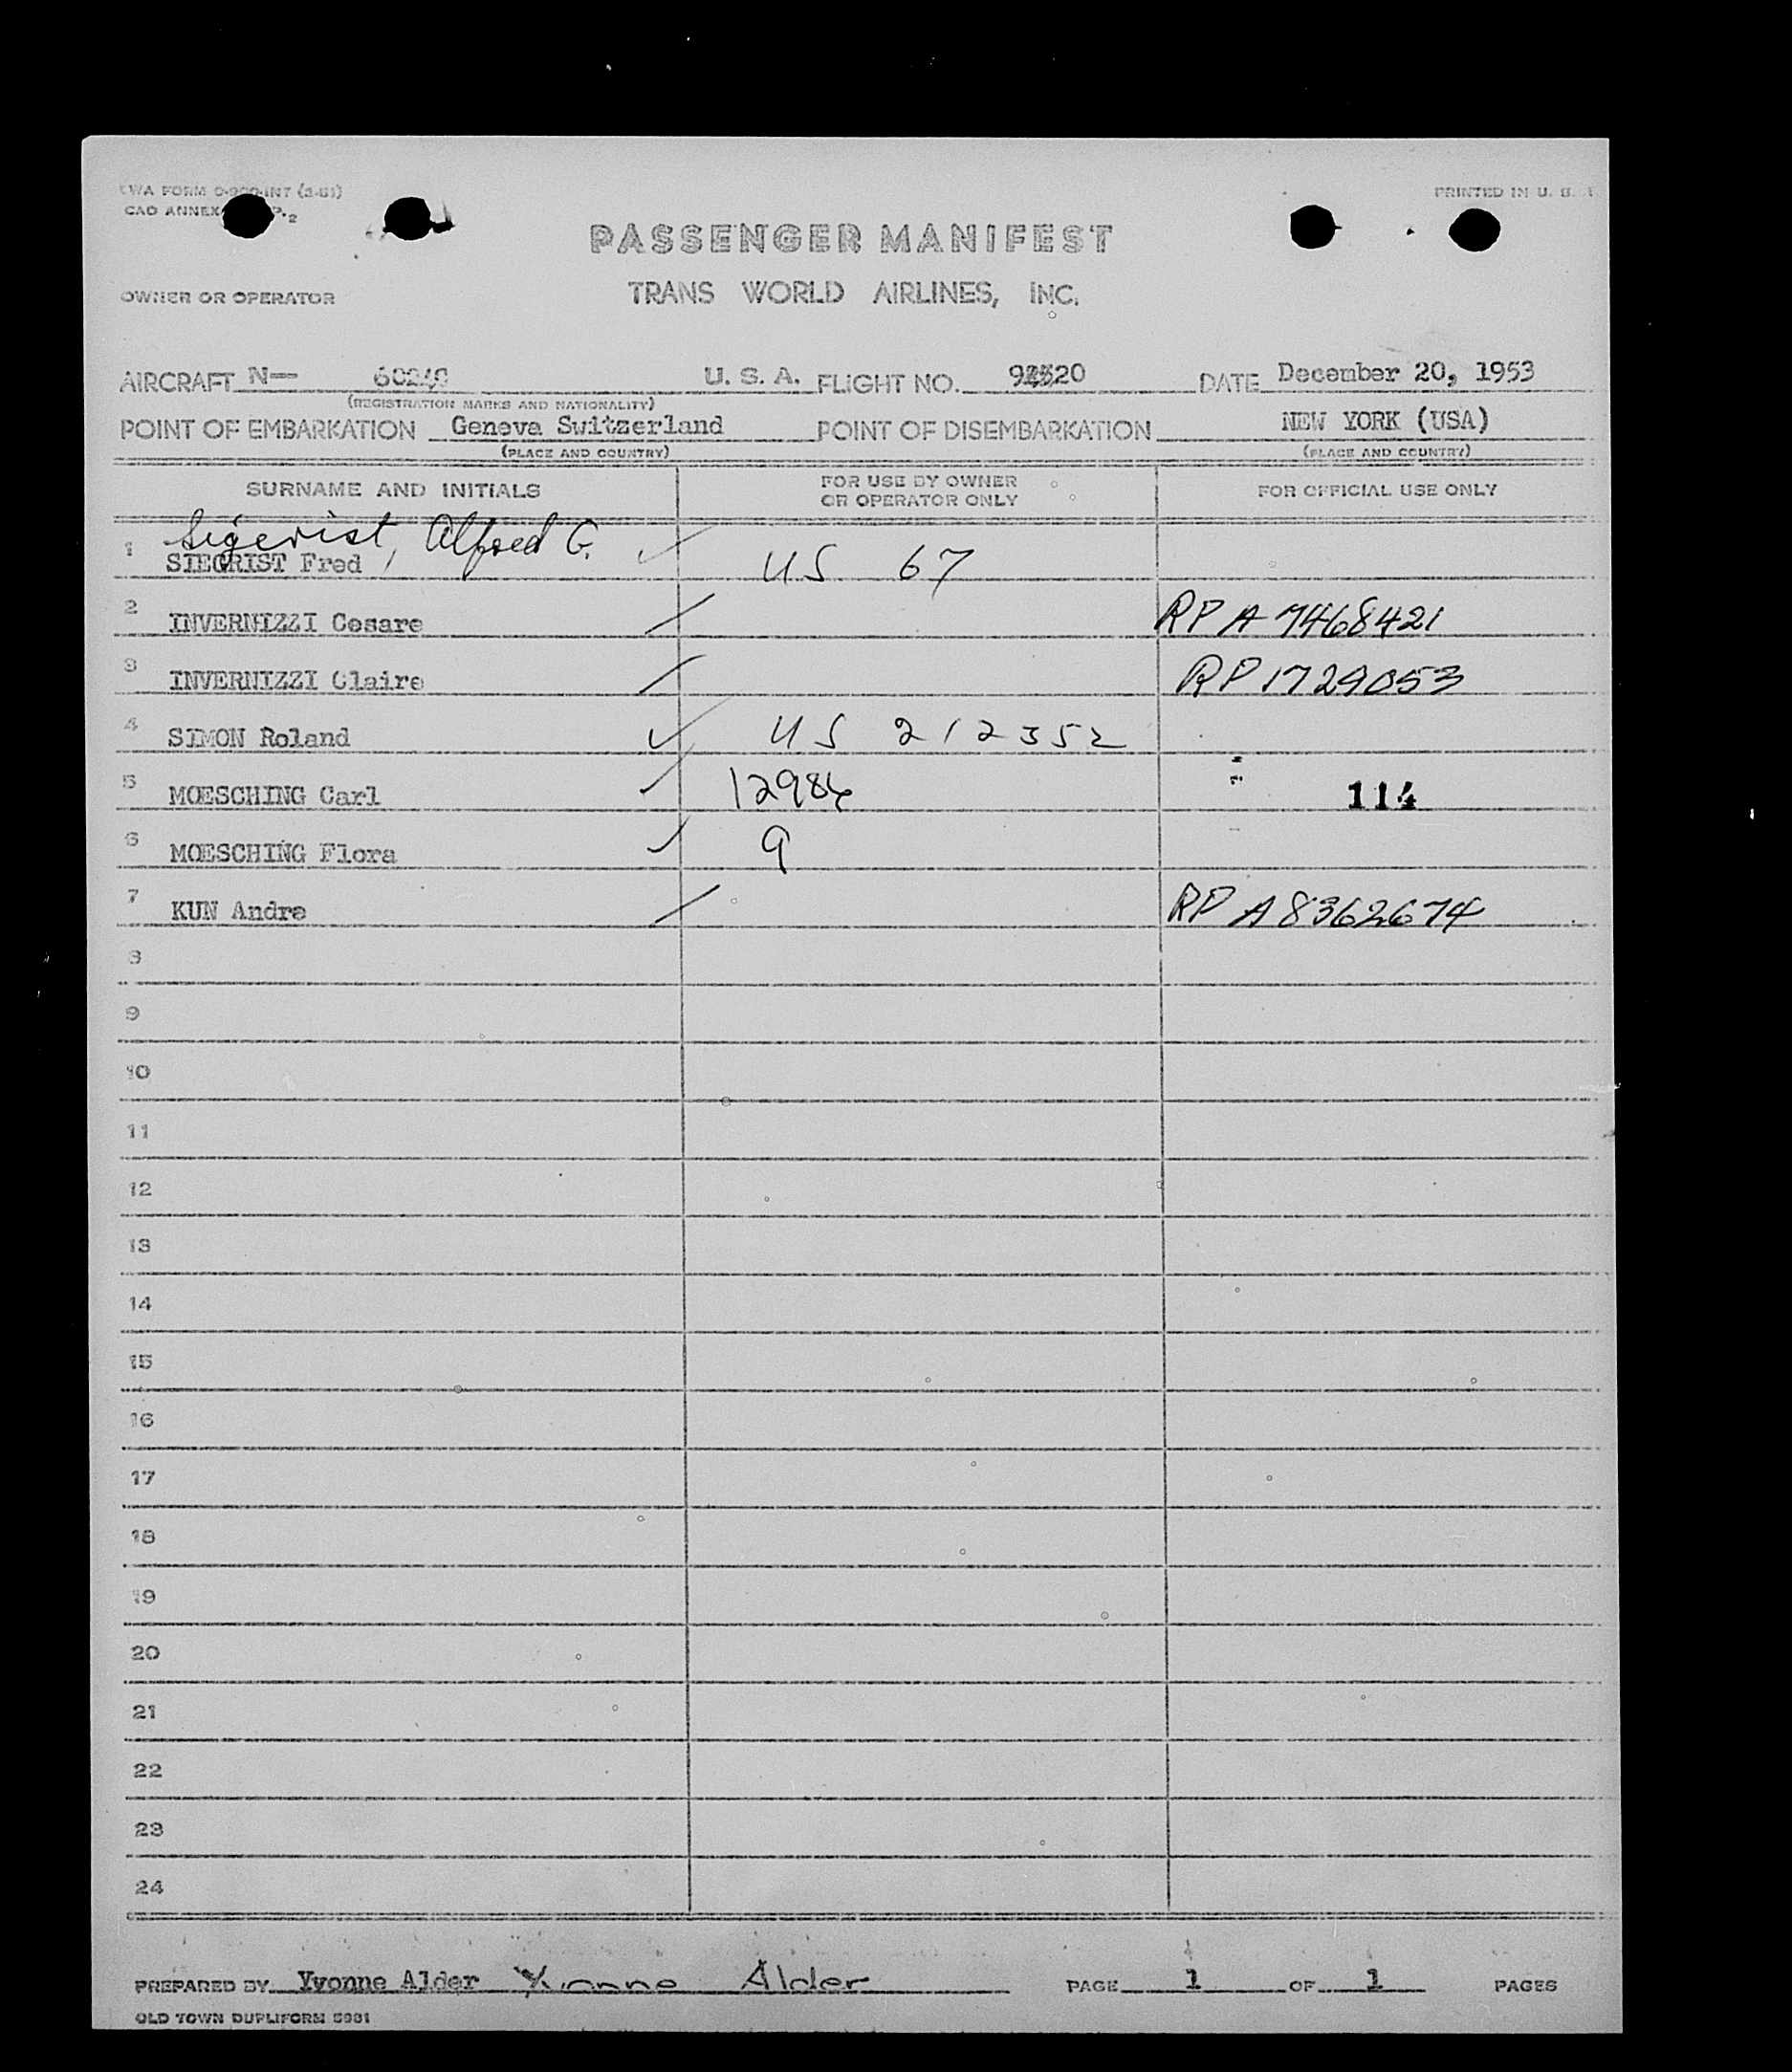 TWA FORM O-   -INT (3-51)
PRINTED IN U. S.
CAO ANNEX
PASSENGER MANIFEST
OWNER OR OPERATOR TRANS WORLD AIRLINES, INC.
AIRCRAFT N— U. S. A. FLIGHT NO. DATE December 20, 1953
(REGISTRATION MARKS AND NATIONALITY)
POINT OF EMBARKATION Geneva Switzerland POINT OF DISEMBARKATION NEW YORK (USA)
(PLACE AND COUNTRY) (PLACE AND COUNTRY)
SURNAME AND INITIALS FOR USE BY OWNER OR OPERATOR ONLY FOR OFFICIAL USE ONLY
Sigerist, Alfred G.
1 SIEGRIST Fred US 67
2 INVERNIZZI Cesare RP A 7468421
3 INVERNIZZI Claire RP 1729053
4 SIMON Roland US 212352
5 MOESCHING Carl 12986 114
6 MOESCHING Flora 9
7 KUN Andre RP A 8362674
8
9
10
11
12
13
14
15
16
17
18
19
20
21
22
23
24
PREPARED BY Yvonne Alder Yvonne Alder PAGE 1 OF 1 PAGES
OLD TOWN DUPLIFORM 5981